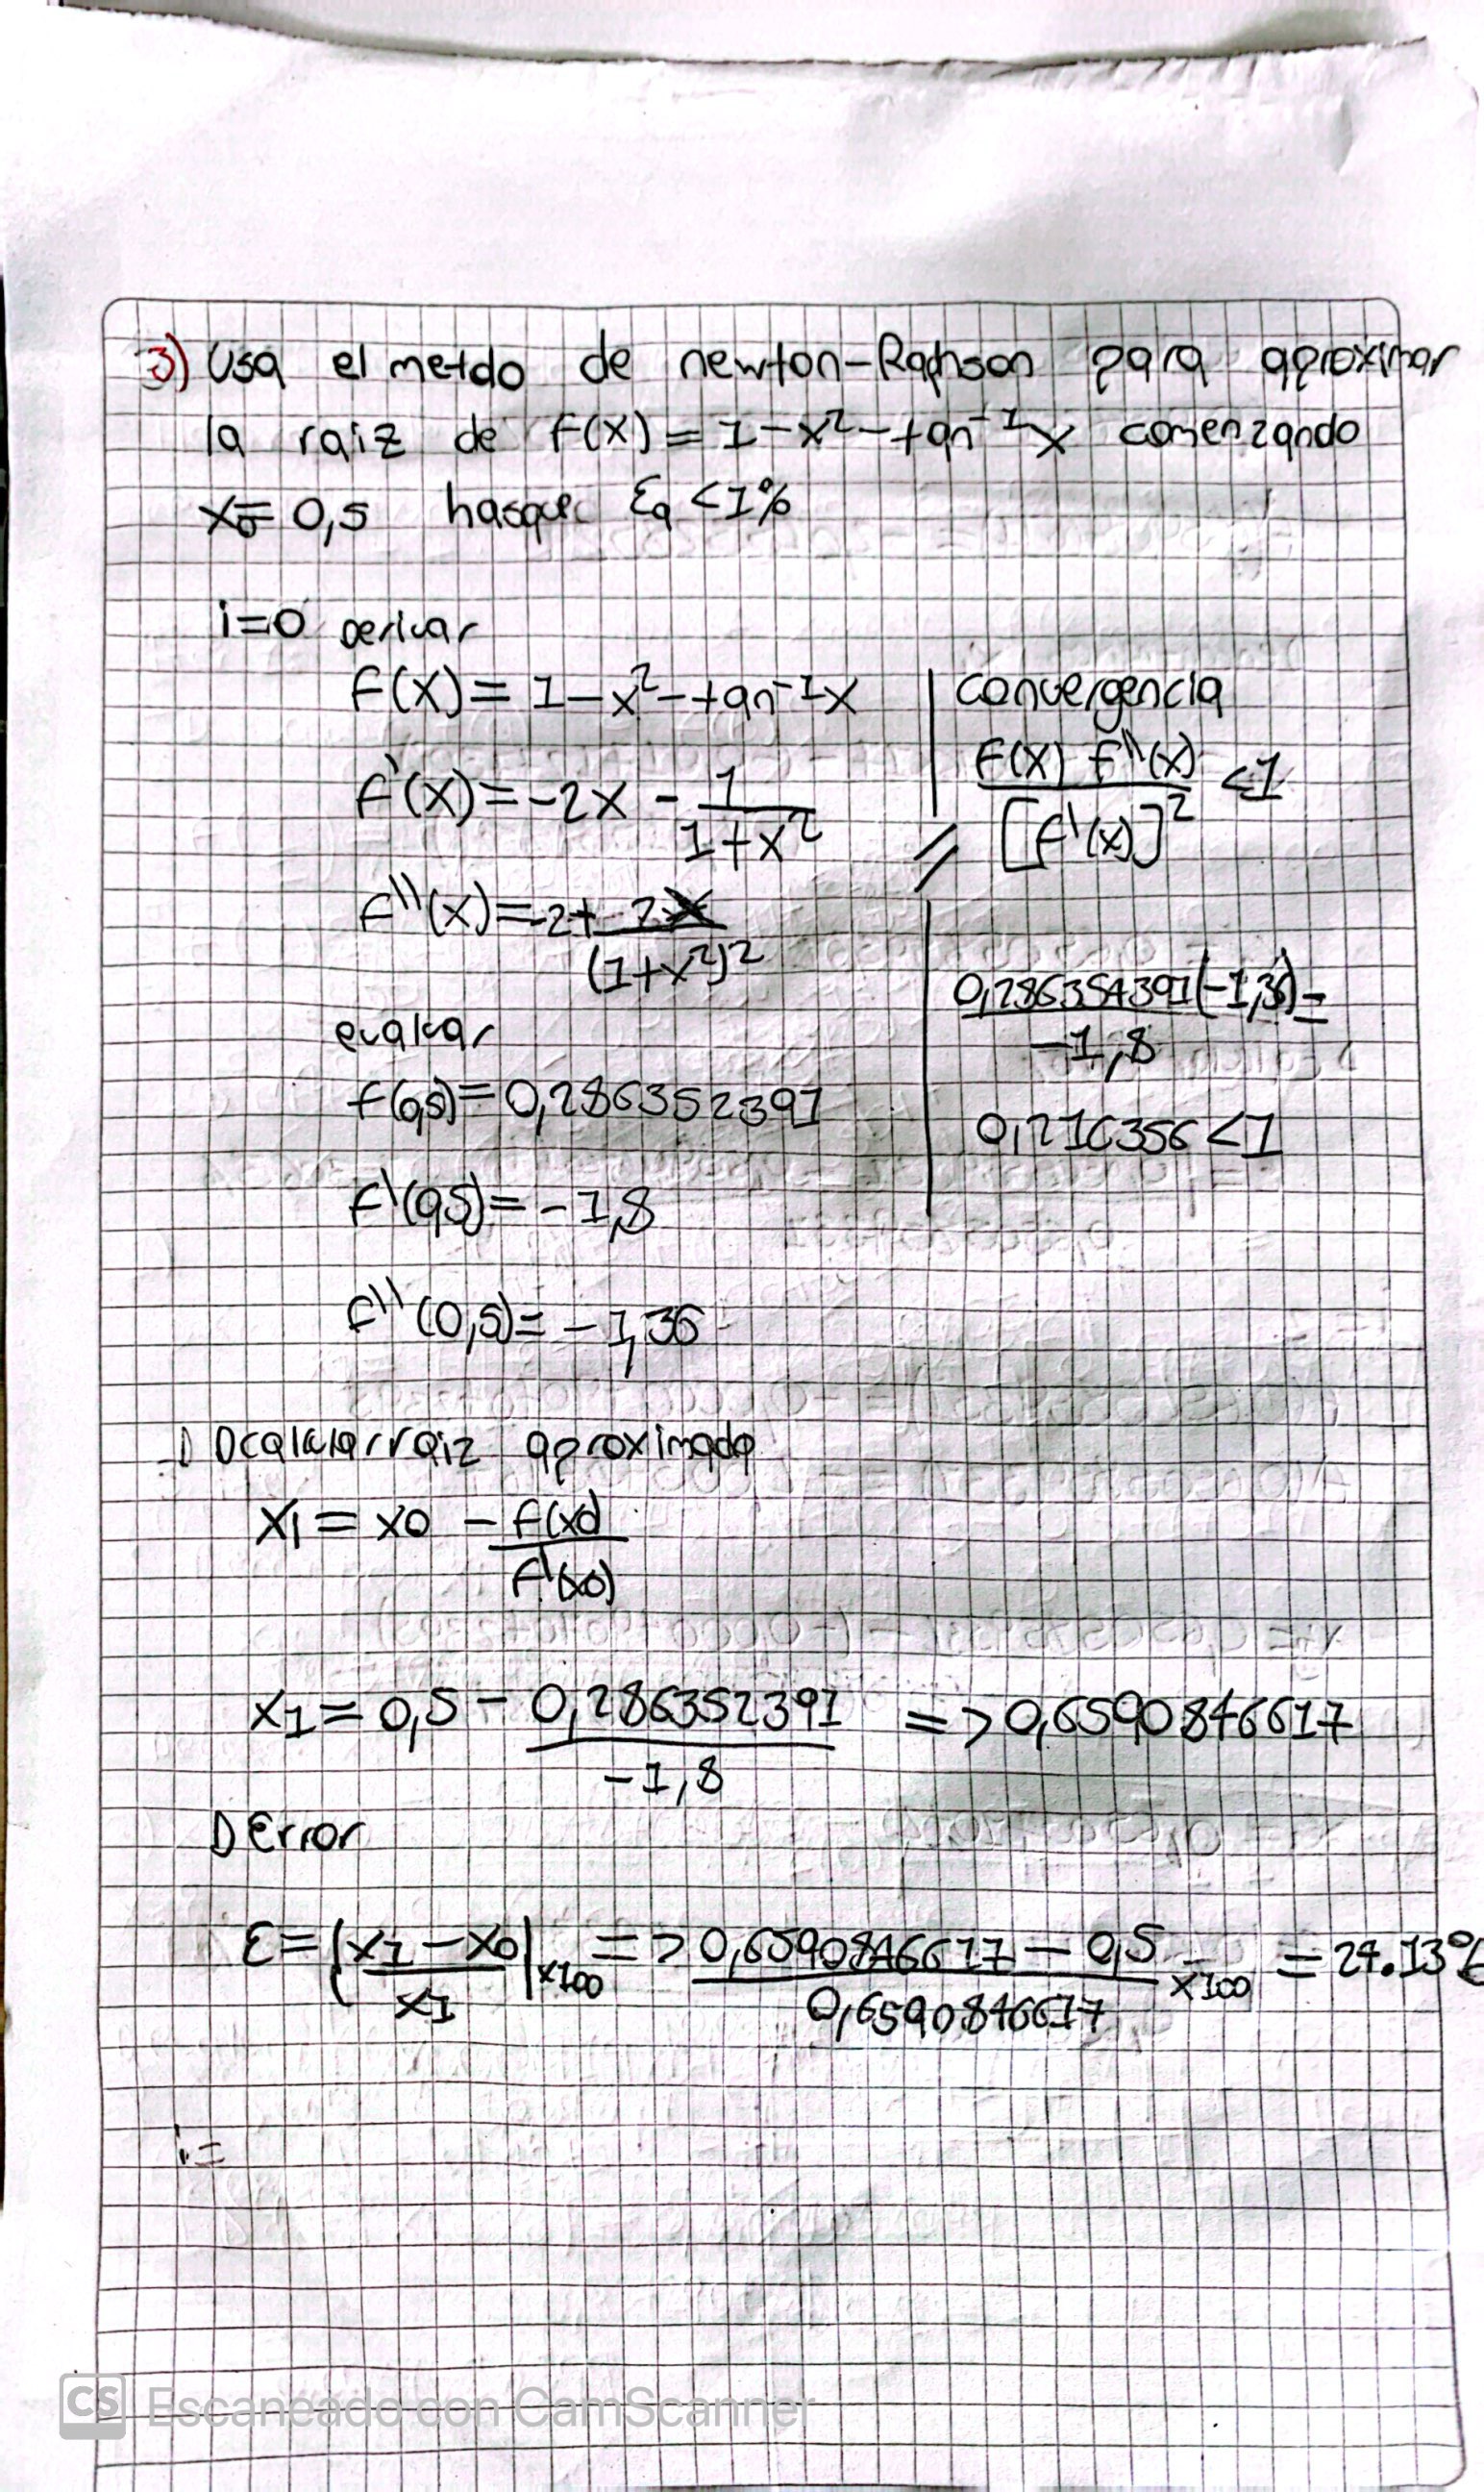 3) Usa el metdo de newton-Raphson para aproximar
la raiz de f(x) = 1-x²-tan⁻¹x comenzando
x0= 0,5 hasque εa <1%
i=0 Derivar
f(x) = 1-x²-tan⁻¹x
convergencia
f'(x)=-2x - 1/(1+x²)
f(x) f''(x)/[f'(x)]² <1
f''(x)=-2+ 2x/(1+x²)²
0,286354391(-1,36)/-1,8 =
evaluar
f(0,5)=0,286352391
0,216356<1
f'(0,5)= -1,8
f''(0,5)= -1,36
calcular raiz aproximada
x1 = x0 - f(x0)/f'(x0)
x1= 0,5 - 0,286352391/-1,8 => 0,6590846617
D Error
ε=|x1-x0/x1|x100 => 0,6590846617-0,5/0,6590846617 x100 = 24.13%
i=
CS Escaneado con CamScanner